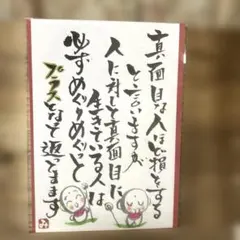 真面目な人ほど損をする
と言いますが
人に対して真面目に
生きている人は
必ずめぐりめぐって
プラスとなって返ってきます